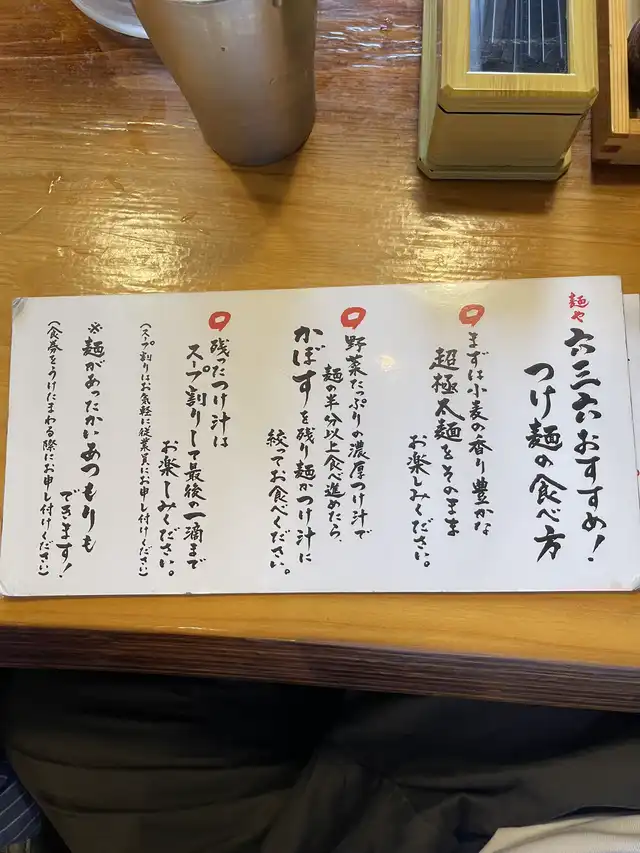 麺や
六三六おすすめ!
つけ麺の食べ方
まずは小麦の香り豊かな
超極太麺をそのまま
お楽しみください。
野菜たっぷりの濃厚つけ汁で
麺の半分以上食べ進めたら、
かぼすを残り麺かつけ汁に
絞ってお食べください。
残たつけ汁は
スープ割りして最後の一滴まで
お楽しみください。
(スープ割りはお気軽に従業員にお申し付けください)
※麺があったかいあつもりも
できます!
(食券をうけたまわる際にお申し付けください)